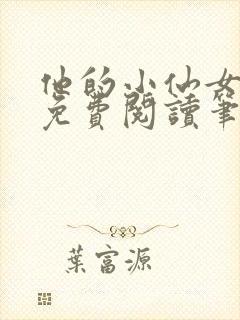 他的小仙女
免費閱讀筆
葉富源